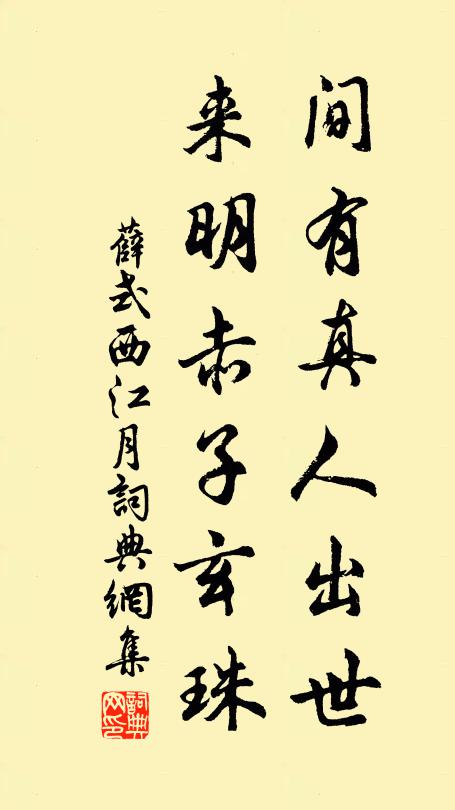 间有真人出世
来明赤子玄珠
薛式西江月詞典網集
詞典网印